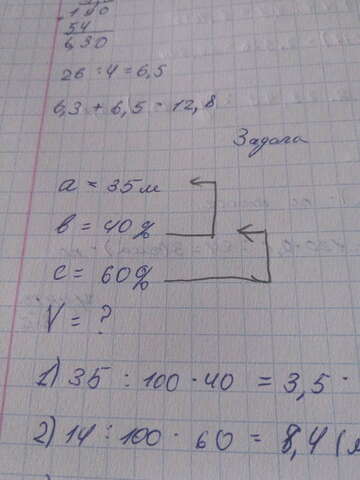 140
54
6,30
26 : 4 = 6,5
6,3 + 6,5 = 12,8
Задача
a = 35 м
b = 40 %
c = 60 %
V = ?
1) 35 : 100 · 40 = 3,5 ·
2) 14 : 100 · 60 = 8,4 (м